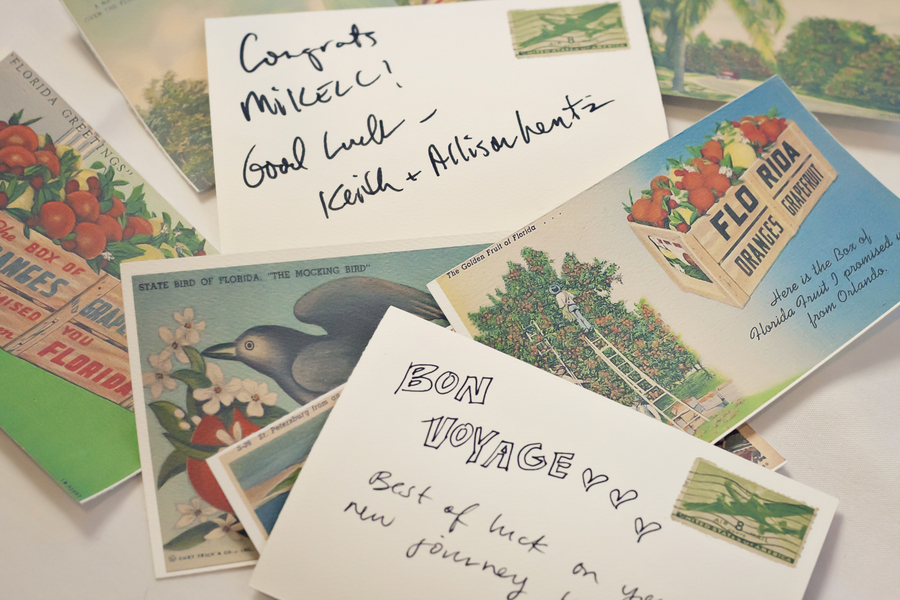 Congrats
MIKELL!
Good Luck -
Keith + Allison Lentz
AIR 8
UNITED STATES OF AMERICA
"FLORIDA GREETINGS"
The BOX OF
YOU
FLORIDA
STATE BIRD OF FLORIDA. "THE MOCKING BIRD"
The Golden Fruit of Florida ....
FLORIDA
ORANGES GRAPEFRUIT
Here is the Box of
Florida Fruit I promised
from Orlando.
St Petersburg from
BON
VOYAGE
Best of luck on
new journey
AIR 8
UNITED STATES OF AMERICA